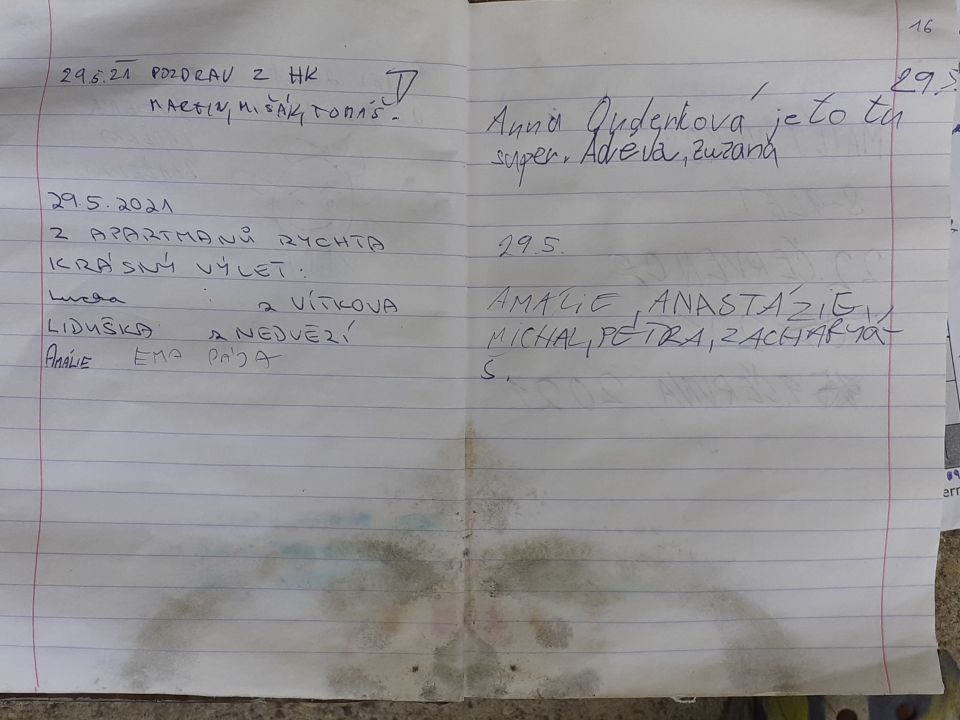 29.5.21 POZDRAV Z HK
MARTIN, MIŠÁK, TOMÁŠ.
29.5.2021
Z APARTMANŮ RYCHTA
KRÁSNÝ VÝLET:
Lucka z VÍTKOVA
LIDUŠKA z NEDVĚZÍ
AMÁLIE EMA PÁJA
16
29.5
Anna Onderková je to tu
super. Adéva, Zuzana
29.5.
AMÁLIE, ANASTÁZIE,
MICHAL, PETRA, ZACHARYÁ-
Š.